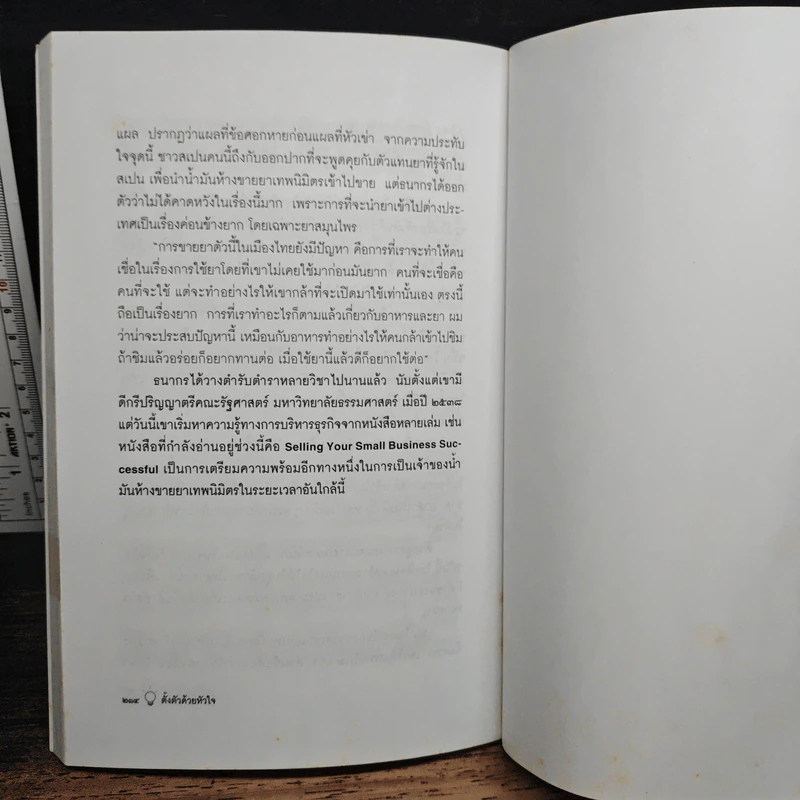 แผล ปรากฏว่าแผลที่ข้อศอกหายก่อนแผลที่หัวเข่า จากความประทับ
ใจจุดนี้ ชาวสเปนคนนี้ถึงกับออกปากที่จะพูดคุยกับตัวแทนยาที่รู้จักใน
สเปน เพื่อนำน้ำมันห้างขายยาเทพนิมิตรเข้าไปขาย แต่ธนากรได้ออก
ตัวว่าไม่ได้คาดหวังในเรื่องนี้มาก เพราะการที่จะนำยาเข้าไปต่างประ-
เทศเป็นเรื่องค่อนข้างยาก โดยเฉพาะยาสมุนไพร
"การขายยาตัวนี้ในเมืองไทยยังมีปัญหา คือการที่เราจะทำให้คน
เชื่อในเรื่องการใช้ยาโดยที่เขาไม่เคยใช้มาก่อนมันยาก คนที่จะเชื่อคือ
คนที่จะใช้ แต่จะทำอย่างไรให้เขากล้าที่จะเปิดมาใช้เท่านั้นเอง ตรงนี้
ถือเป็นเรื่องยาก การที่เราทำอะไรก็ตามแล้วเกี่ยวกับอาหารและยา ผม
ว่าน่าจะประสบปัญหานี้ เหมือนกับอาหารทำอย่างไรให้คนกล้าเข้าไปชิม
ถ้าชิมแล้วอร่อยก็อยากทานต่อ เมื่อใช้ยานี้แล้วดีก็อยากใช้ต่อ"
ธนากรได้วางตำรับตำราหลายวิชาไปนานแล้ว นับตั้งแต่เขามี
ดีกรีปริญญาตรีคณะรัฐศาสตร์ มหาวิทยาลัยธรรมศาสตร์ เมื่อปี ๒๕๓๘
แต่วันนี้เขาเริ่มหาความรู้ทางการบริหารธุรกิจจากหนังสือหลายเล่ม เช่น
หนังสือที่กำลังอ่านอยู่ช่วงนี้คือ Selling Your Small Business Suc-
cessful เป็นการเตรียมความพร้อมอีกทางหนึ่งในการเป็นเจ้าของน้ำ
มันห้างขายยาเทพนิมิตรในระยะเวลาอันใกล้นี้
๒๑๔ ตั้งตัวด้วยหัวใจ